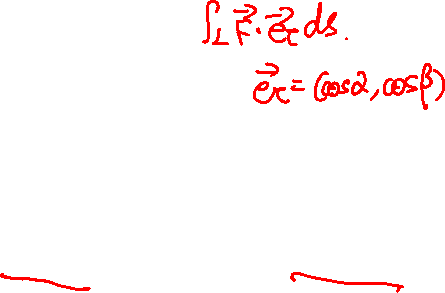 ∫_L F⃗·e⃗_τ ds.
e⃗_τ = (cosα, cosβ)